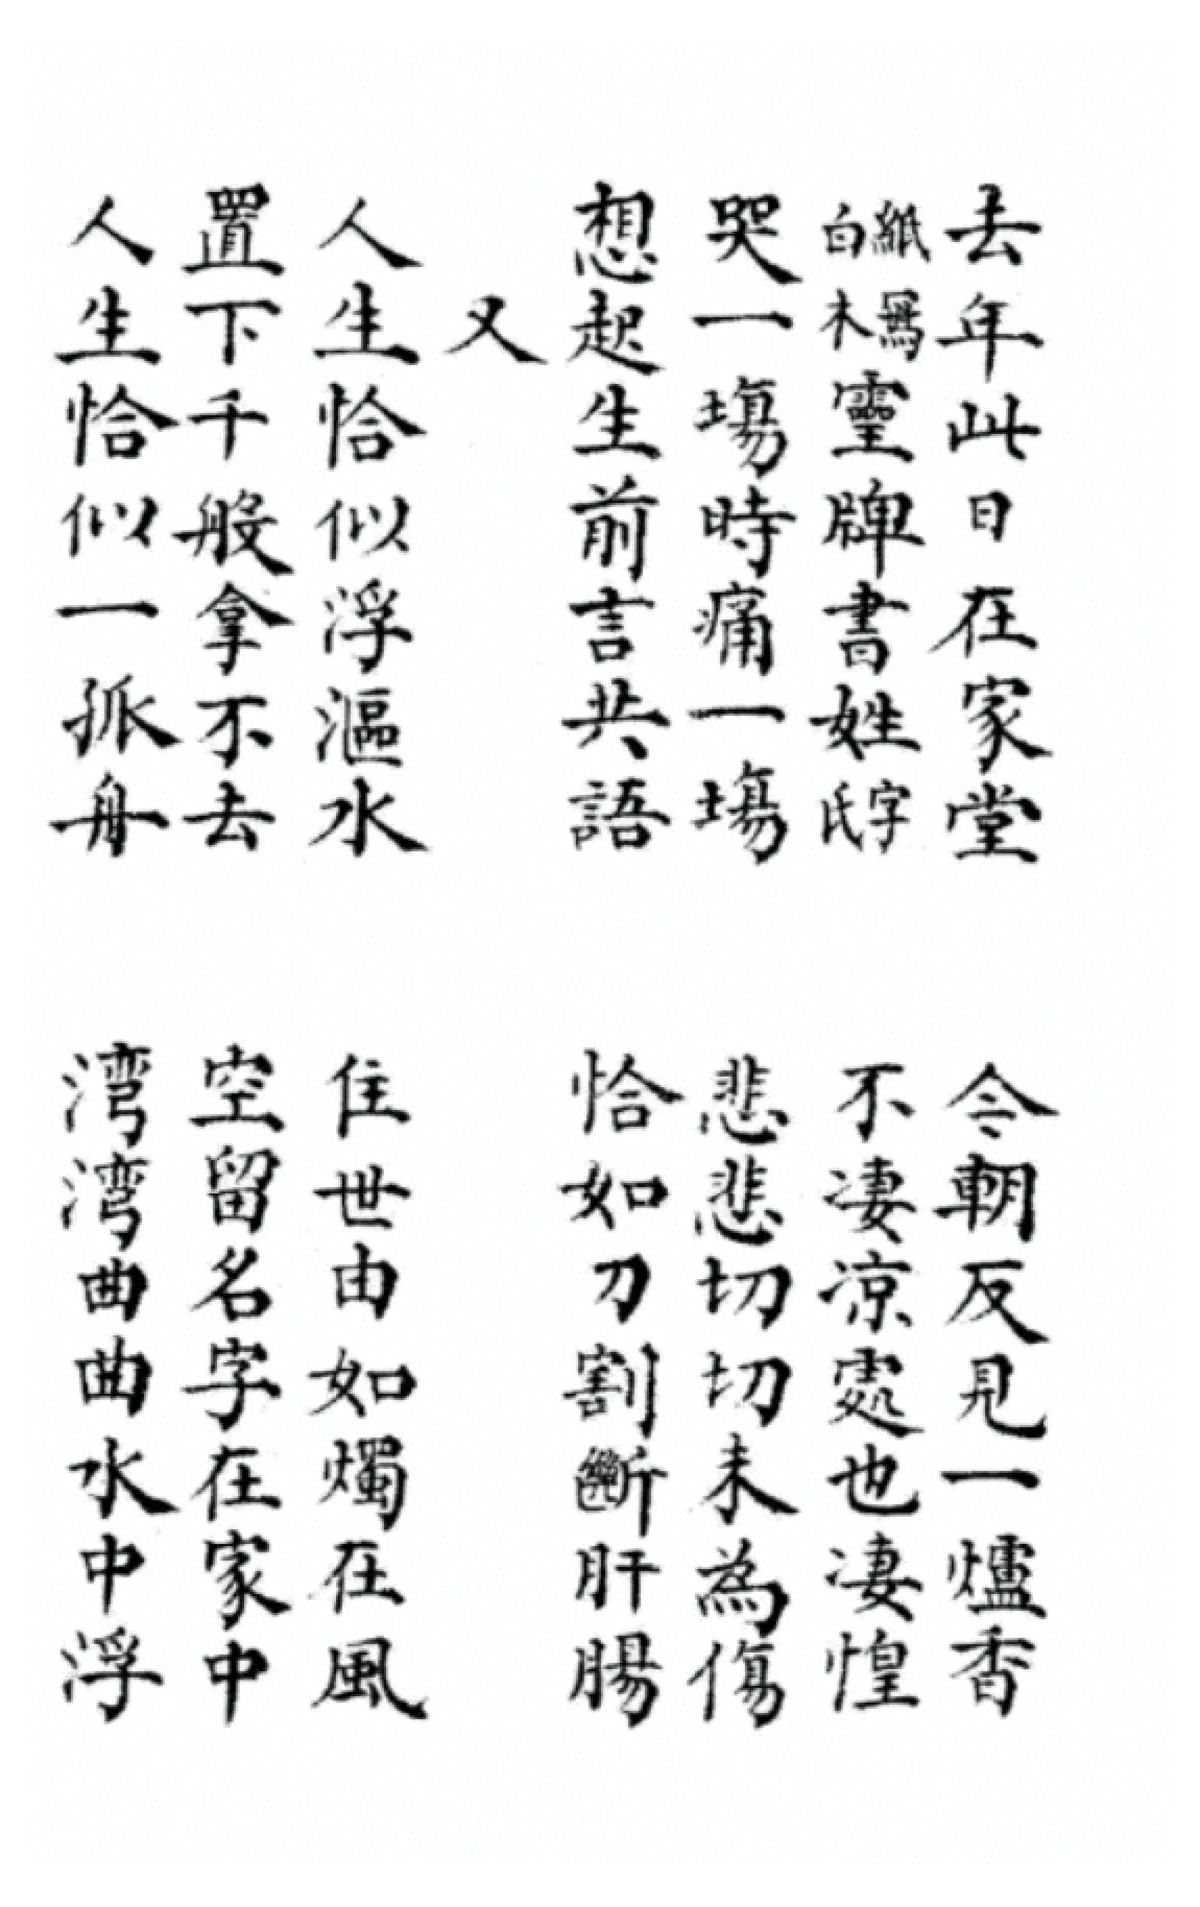 去年此日在家堂 今朝反見一爐香
紙寫白木靈牌書姓字氏 不凄凉處也凄惶
哭一塲時痛一塲 悲悲切切未為傷
想起生前言共語 恰如刀割斷肝腸
又
人生恰似浮漚水 住世由如燭在風
置下千般拿不去 空留名字在家中
人生恰似一孤舟 湾湾曲曲水中浮